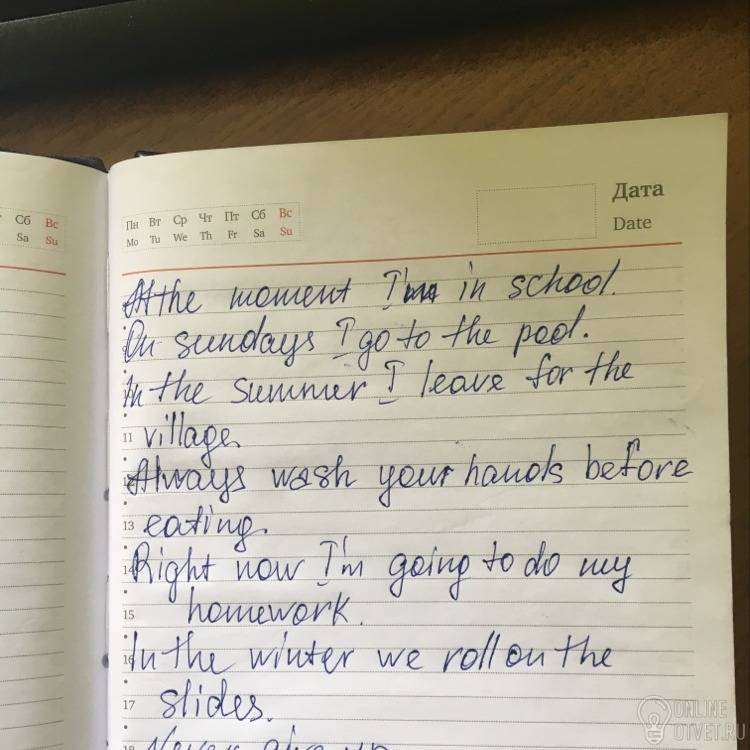 Сб Вс
Sa Su
Пн Вт Ср Чт Пт Сб Вс
Mo Tu We Th Fr Sa Su
Дата
Date
At the moment I'm in school.
On sundays I go to the pool.
In the summer I leave for the
11 village.
Always wash your hands before
13 eating.
14 Right now I'm going to do my
15 homework.
16 In the winter we roll on the
17 slides.
18 Never give up
ONLINE
OTVET.RU